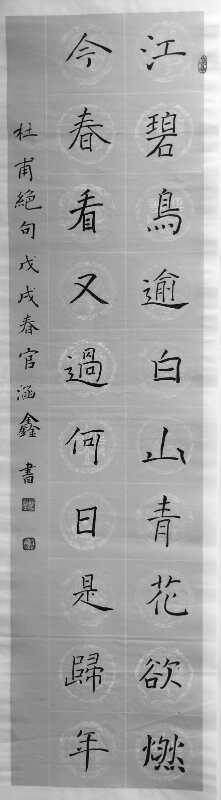 江碧鳥逾白山青花欲燃
今春看又過何日是歸年
杜甫絕句戊戌春官涵鑫書